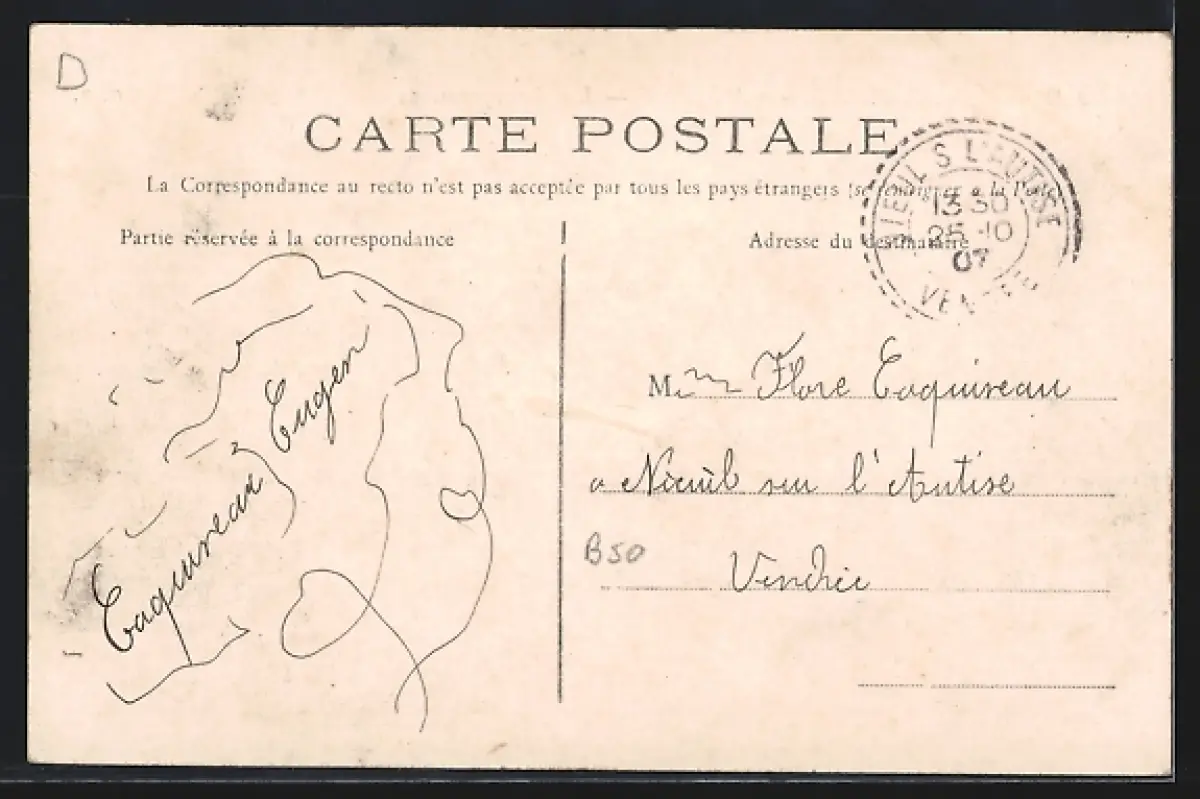 D
CARTE POSTALE
La Correspondance au recto n'est pas acceptée par tous les pays étrangers (se renseigner à la Poste)
Partie réservée à la correspondance
Adresse du destinataire
NIEUL S L'AUTISE
13 30
25 -10
07
VENDÉE
Eaquireau Eugen
Mme Flore Eaquireau
a Nieuil sur l'Autise
B50
Vendée